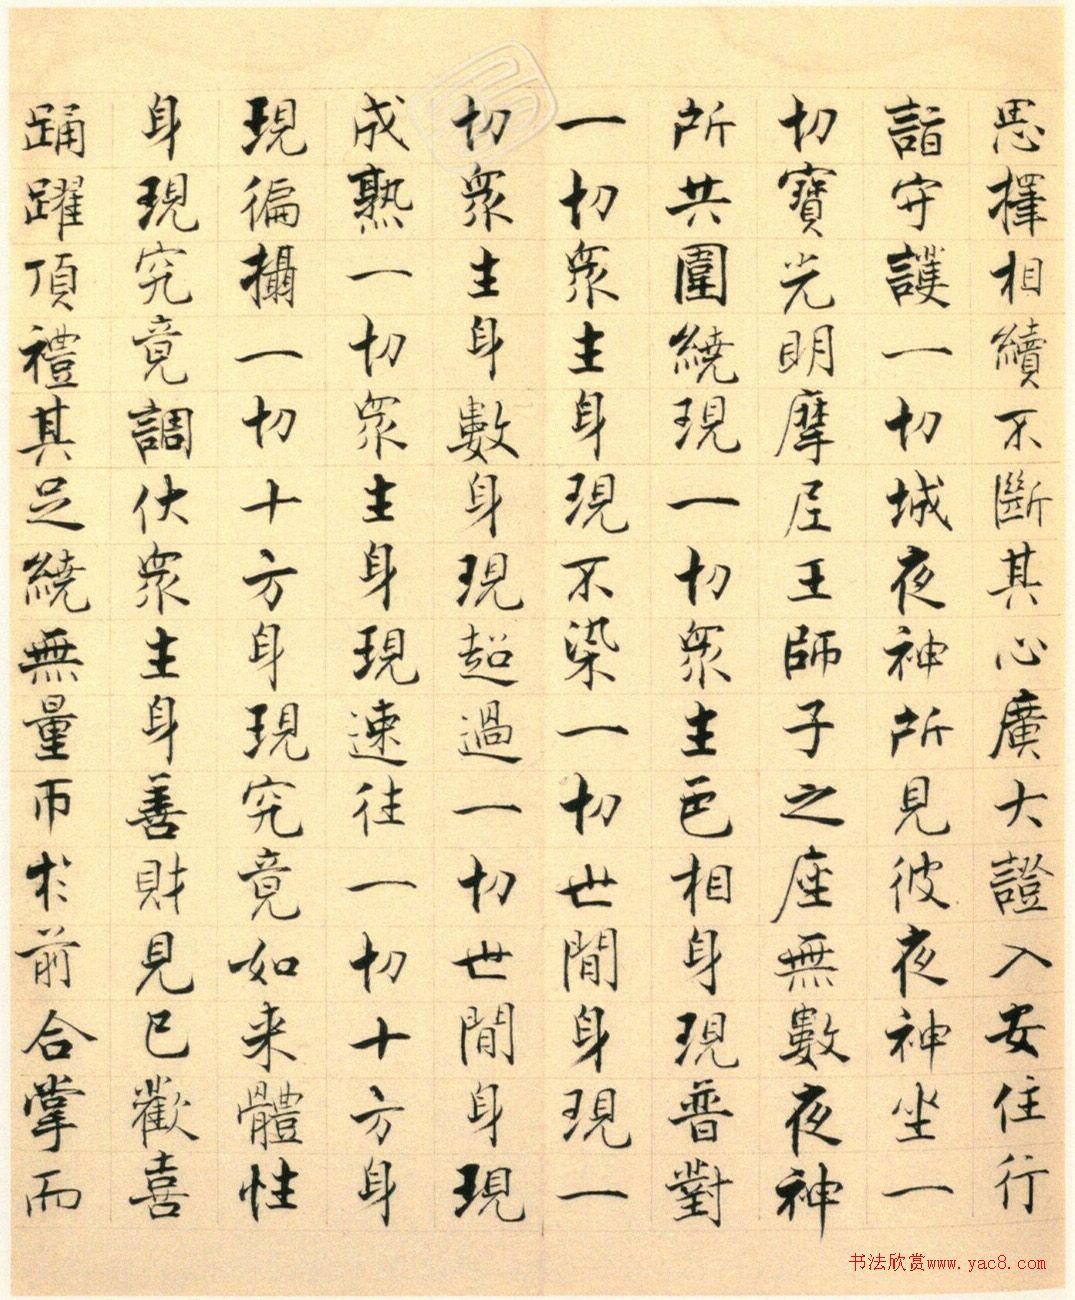 思擇相續不斷其心廣大證入安住行
詣守護一切城夜神所見彼夜神坐一
切寶光明摩尼王師子之座無數夜神
所共圍繞現一切眾生色相身現普對
一切眾生身現不染一切世閒身現一
切眾生身數身現超過一切世閒身現
成熟一切眾生身現速往一切十方身
現徧攝一切十方身現究竟如来體性
身現究竟調伏眾生身善財見已歡喜
踊躍頂禮其足繞無量帀於前合掌而
书法欣赏www.yac8.com